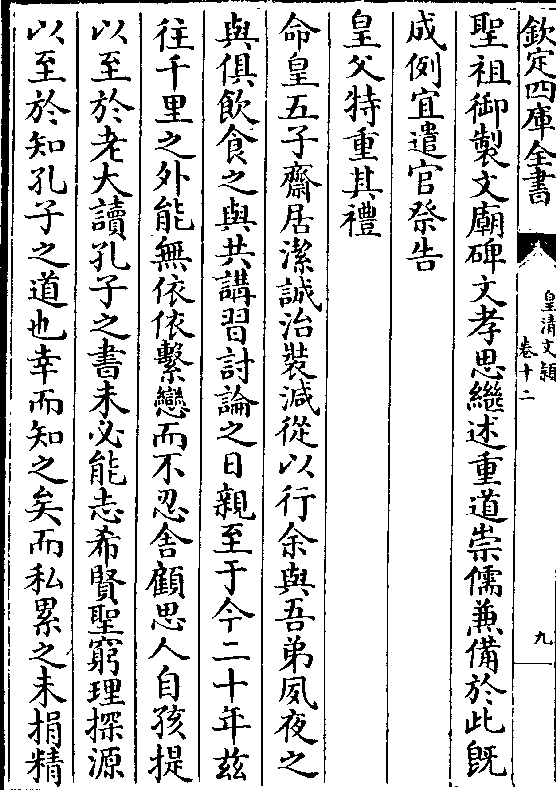 欽定四庫全書
皇清文穎
卷十二
九
聖祖御製文廟碑文孝思繼述重道崇儒兼備於此旣
成例宜遣官祭告
皇父特重其禮
命皇五子齋居潔誠治裝減從以行余與吾弟夙夜之
與俱飲食之與共講習討論之日親至于今二十年兹
往千里之外能無依依繫戀而不忍舍顧思人自孩提
以至於老大讀孔子之書未必能志希賢聖窮理探源
以至於知孔子之道也幸而知之矣而私累之未捐精